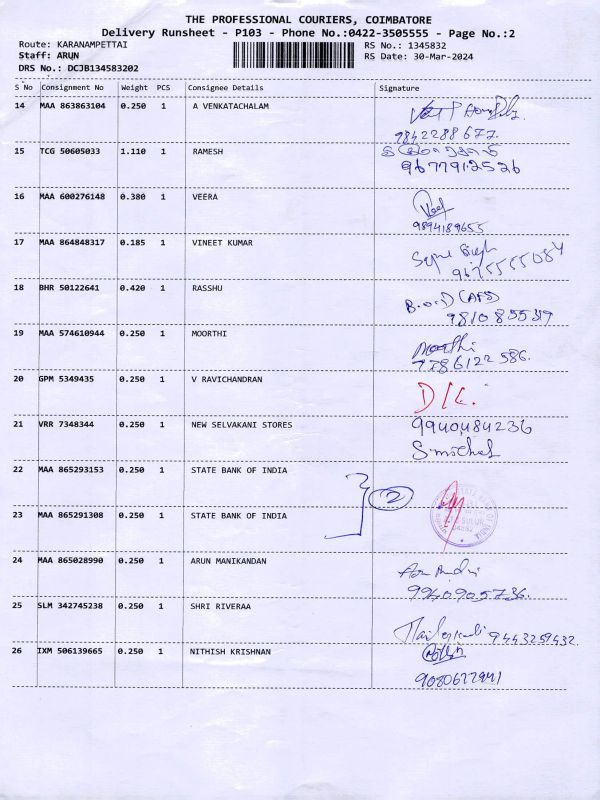 THE PROFESSIONAL COURIERS, COIMBATORE
Delivery Runsheet - P103 - Phone No.:0422-3505555 - Page No.:2
Route: KARANAMPETTAI RS No.: 1345832
Staff: ARUN RS Date: 30-Mar-2024
DRS No.: DCJB134583202
S No Consignment No Weight PCS Consignee Details Signature
14 MAA 863863104 0.250 1 A VENKATACHALAM
9842288677
15 TCG 50605033 1.110 1 RAMESH
9677912526
16 MAA 600276148 0.380 1 VEERA
9894189655
17 MAA 864848317 0.185 1 VINEET KUMAR
18 BHR 50122641 0.420 1 RASSHU
19 MAA 574610944 0.250 1 MOORTHI Moorthi
7786122586.
20 GPM 5349435 0.250 1 V RAVICHANDRAN D/L.
21 VRR 7348344 0.250 1 NEW SELVAKANI STORES 9940484236
22 MAA 865293153 0.250 1 STATE BANK OF INDIA
2
23 MAA 865291308 0.250 1 STATE BANK OF INDIA
24 MAA 865028990 0.250 1 ARUN MANIKANDAN
9940905736.
25 SLM 342745238 0.250 1 SHRI RIVERAA
9443259432
26 IXM 506139665 0.250 1 NITHISH KRISHNAN
9080677941